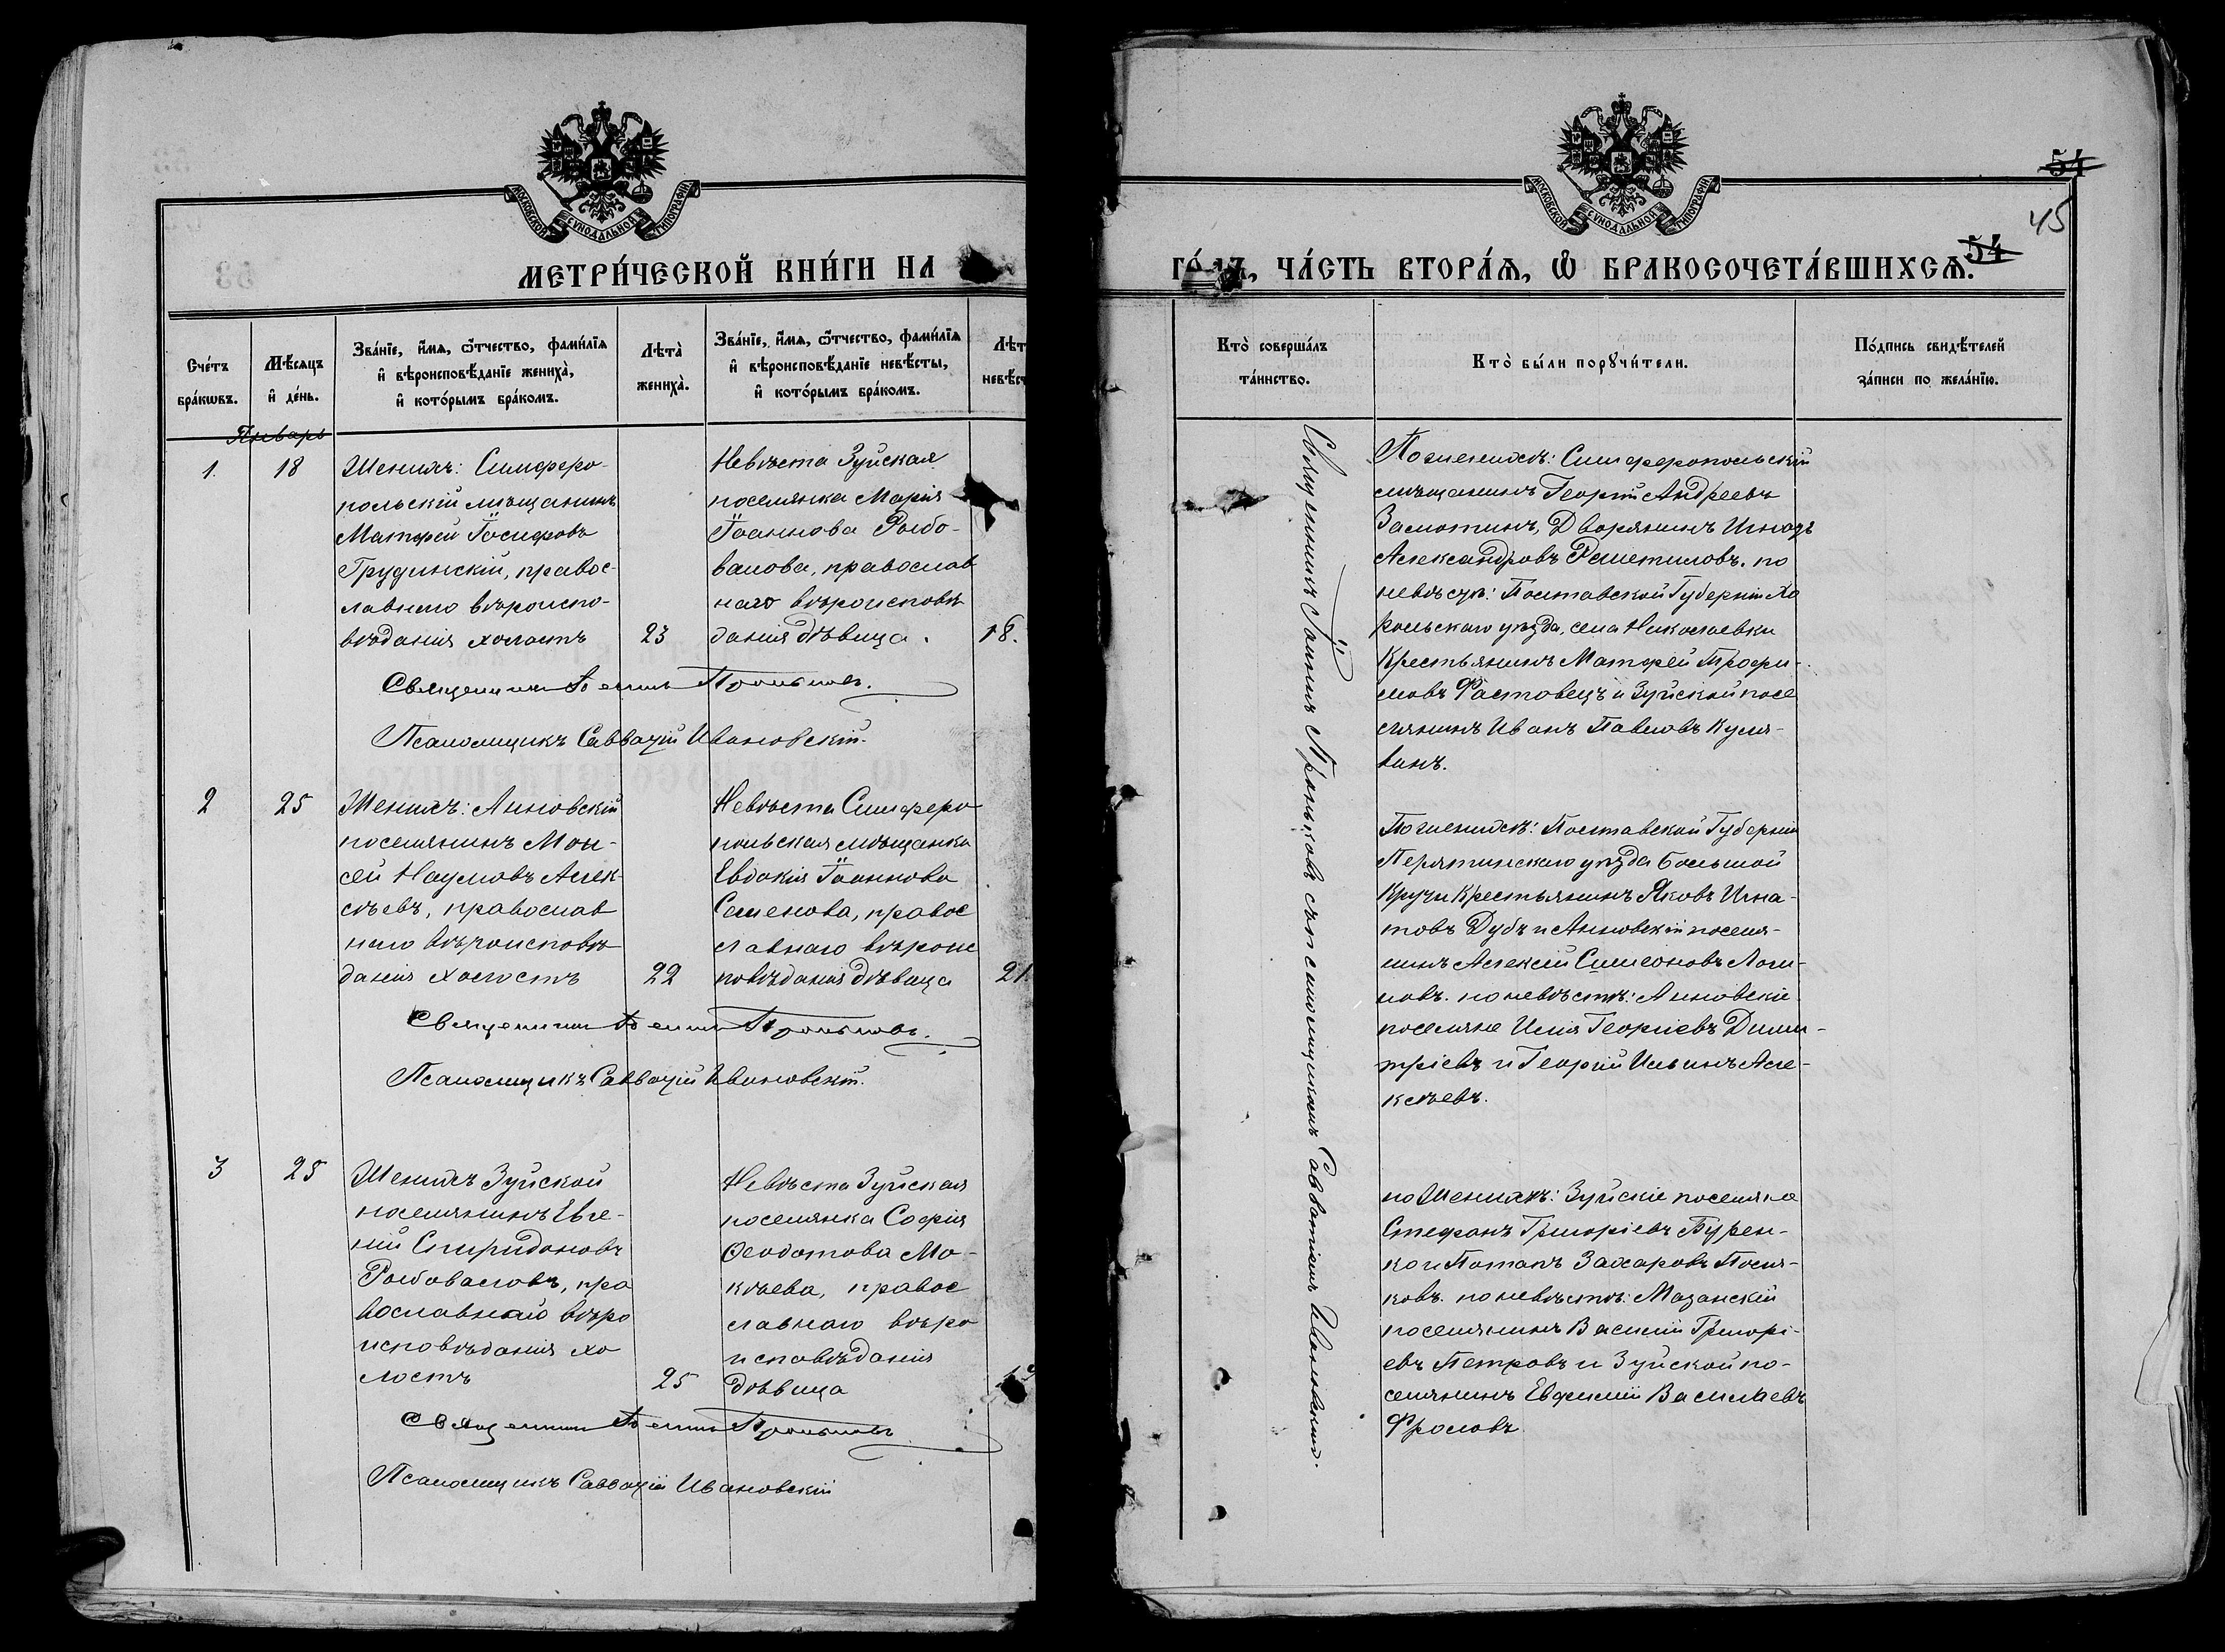 МОСКОВСКОЙ СѴНОДАЛЬНОЙ ТИПОГРАФІИ
МЕТРИ́ЧЕСКОЙ КНИ́ГИ НА
Сче́тъ бра́кωвъ.
Мѣ́сяцъ и҆ де́нь.
Зва́нїе, и҆́мѧ, ѻ҆́тчество, фами́лїѧ
и҆ вѣроисповѣ́данїе жениха̀,
и҆ кото́рымъ бра́комъ.
Лѣта̀
жениха̀.
Зва́нїе, и҆́мѧ, ѻ҆́тчество, фами́лїѧ
и҆ вѣроисповѣ́данїе невѣ́сты,
и҆ кото́рымъ бра́комъ.
Лѣт
невѣ́с
Январь
1. 18
Женихъ: Симферо-
польскій мѣщанинъ
Матфей Іосифовъ
Грудинскій, правос-
лавнаго вѣроиспо-
вѣданія холостъ
23
Невѣста Зуйская
поселянка Марія
Іоаннова Рыбо-
валова, православ
наго вѣроисповѣ
данія дѣвица.
18.
Священникъ
Псаломщикъ Савватій Ивановскій.
2 25
Женихъ: Анновскій
поселянинъ Мои-
сей Наумовъ Алек-
сѣевъ, православ
наго вѣроисповѣ
данія холостъ
22
Невѣста Симферо
польская мѣщанка
Евдокія Іоаннова
Семенова, правос
лавнаго вѣроис
повѣданія дѣвица
21.
Священникъ
Псаломщикъ Савватій Ивановскій.
3 25
Женихъ Зуйской
поселянинъ Евге-
ній Спиридоновъ
Рыбоваловъ, пра
вославнаго вѣро
исповѣданія хо
лостъ
25
Невѣста Зуйская
поселянка Софія
Ѳеодотова Мо-
кѣева, правос
лавнаго вѣро
исповѣданія
дѣвица
Священникъ
Псаломщикъ Савватій Ивановскій
МОСКОВСКОЙ СѴНОДАЛЬНОЙ ТИПОГРАФІИ
54
45
ГО́ДЪ, ЧА́СТЬ ВТОРА́Ѧ, Ѽ БРАКОСОЧЕТА́ВШИХСѦ.
54
Кто̀ соверша́лъ
та́инство.
Кто̀ бы́ли порꙋчи́тели.
По́дпись свидѣ́телей
за́писи по жела́нїю.
Священникъ Іоаннъ съ псаломщикомъ Савватіемъ Ивановскимъ.
По женихѣ: Симферопольскій
мѣщанинъ Георгій Андреевъ
Замотинъ, Дворянинъ
Александровъ Решетиловъ. по
невѣстѣ: Полтавской Губерніи Хо
рольскаго уѣзда, села Николаевки
Крестьянинъ Матфей Трофи-
мовъ Фастовецъ и Зуйской посе
лянинъ Иванъ Павловъ Куля-
бинъ.
По женихѣ: Полтавской Губерніи
Пирятинскаго уѣзда Большой
Кручи Крестьянинъ Яковъ Игна-
товъ Дубъ и Анновскій поселя-
нинъ Алексій Симеоновъ Логи-
новъ. по невѣстѣ: Анновскіе
поселяне Илія Георгіевъ Дими-
тріевъ и Георгій Ильинъ Але-
ксѣевъ.
по Женихѣ: Зуйскіе поселяне
Стефанъ Григоріевъ Бурен-
ко и Потапъ Захаровъ Поля-
ковъ. по невѣстѣ: Мазанскій
поселянинъ Василій Григорі-
евъ Петровъ и Зуйской по-
селянинъ Евфимій Василіевъ
Фроловъ